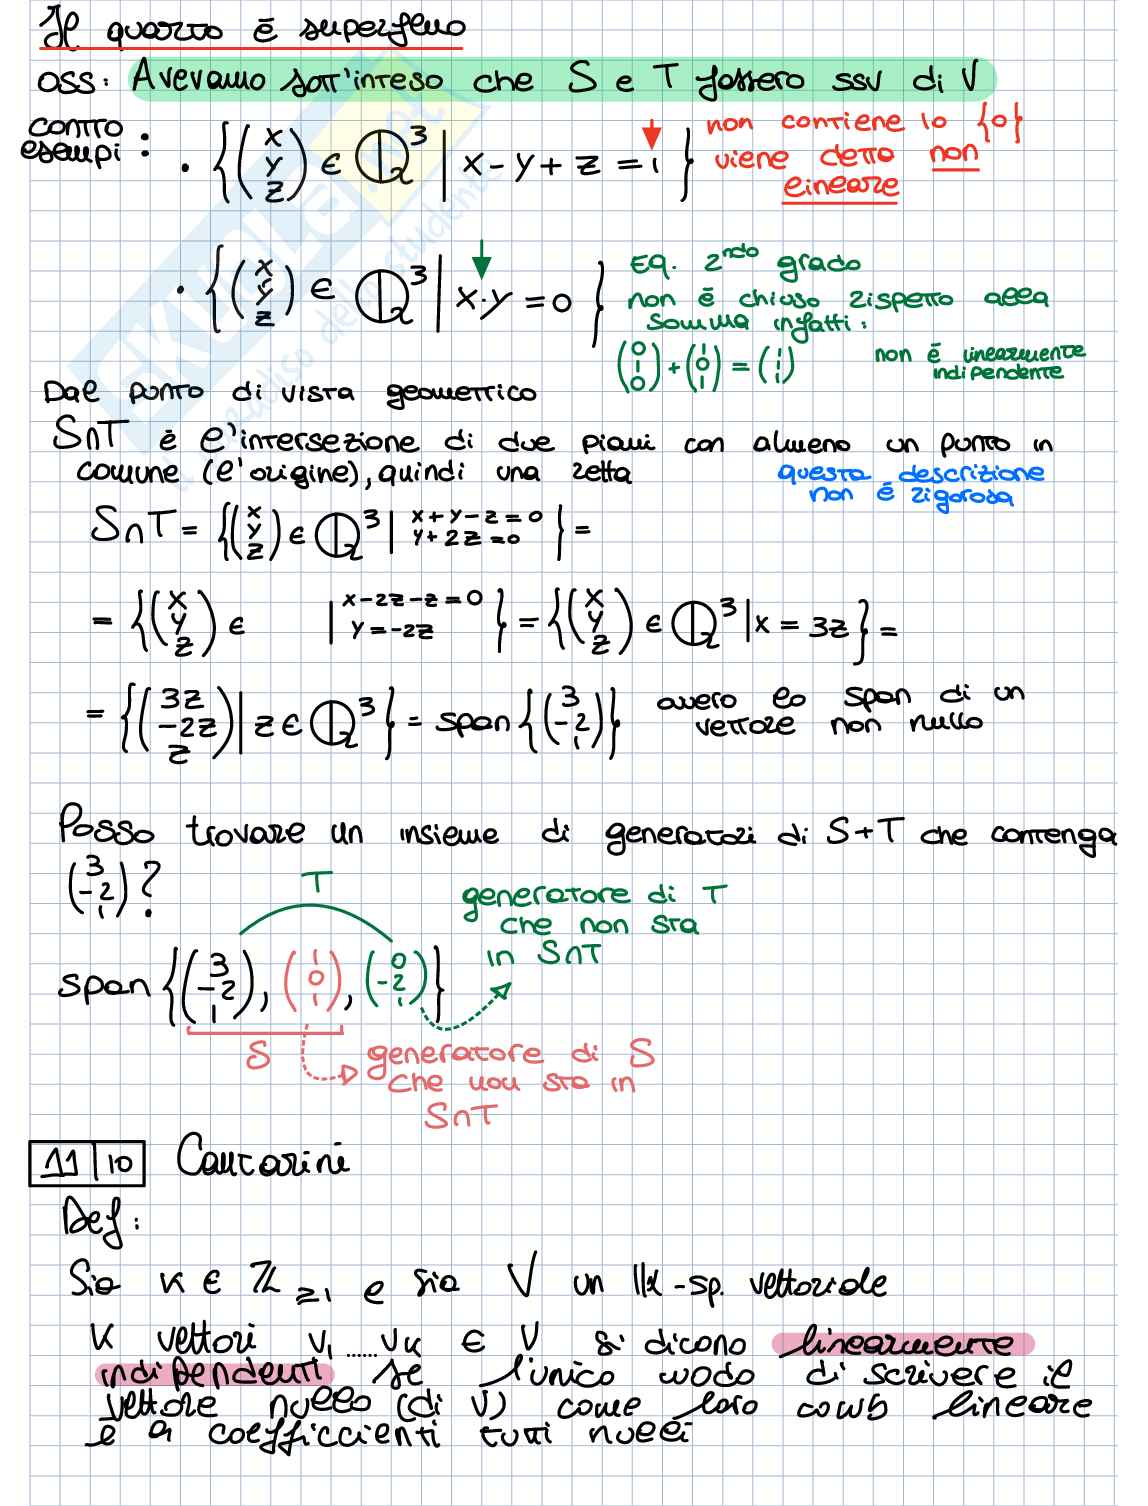 Il quarto è superfluo
OSS: Avevamo sott'inteso che S e T fossero ssv di V
contro esempi:
• {(x y z) ∈ ℚ³ | x - y + z = 1}
non contiene lo {0}
viene detto non
lineare
• {(x y z) ∈ ℚ³ | x·y = 0}
EQ. 2ndo grado
non è chiuso rispetto alla
somma infatti:
(0 1 0) + (1 0 1) = (1 1 1)
non è linearmente
indipendente
Dal punto di vista geometrico
S∩T è l'intersezione di due piani con almeno un punto in
comune (l'origine), quindi una retta
questa descrizione
non è rigorosa
S∩T = {(x y z) ∈ ℚ³ | x+y-z=0 y+2z=0} =
= {(x y z) ∈ | x-2z-z=0 y=-2z} = {(x y z) ∈ ℚ³ | x = 3z} =
= {(3z -2z z) | z ∈ ℚ³} = span {(3 -2 1)} ovvero lo span di un
vettore non nullo
Posso trovare un insieme di generatori di S+T che contenga
(3 -2 1)?
T
generatore di T
che non sta
in S∩T
span {(3 -2 1), (1 0 1), (0 -2 1)}
S
generatore di S
che non sta in
S∩T
11|10 Cantarini
Def:
Sia k ∈ ℤ≥1 e sia V un 𝕂-sp. vettoriale
k vettori v₁......vₖ ∈ V si dicono linearmente
indipendenti se l'unico modo di scrivere il
vettore nullo (di V) come loro comb lineare
è a coefficcienti tutti nulli